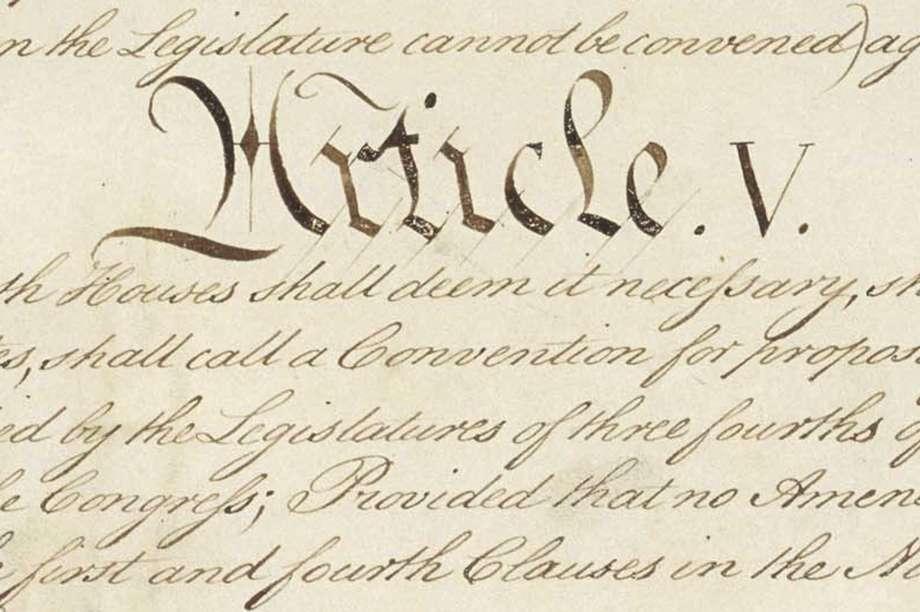 n the Legislature cannot be convened) ag
Article. V.
th Houses shall deem it necessary, sh
es, shall call a Convention for propos
ed by the Legislatures of three fourths o
e Congress; Provided that no Amen
e first and fourth Clauses in the Ni